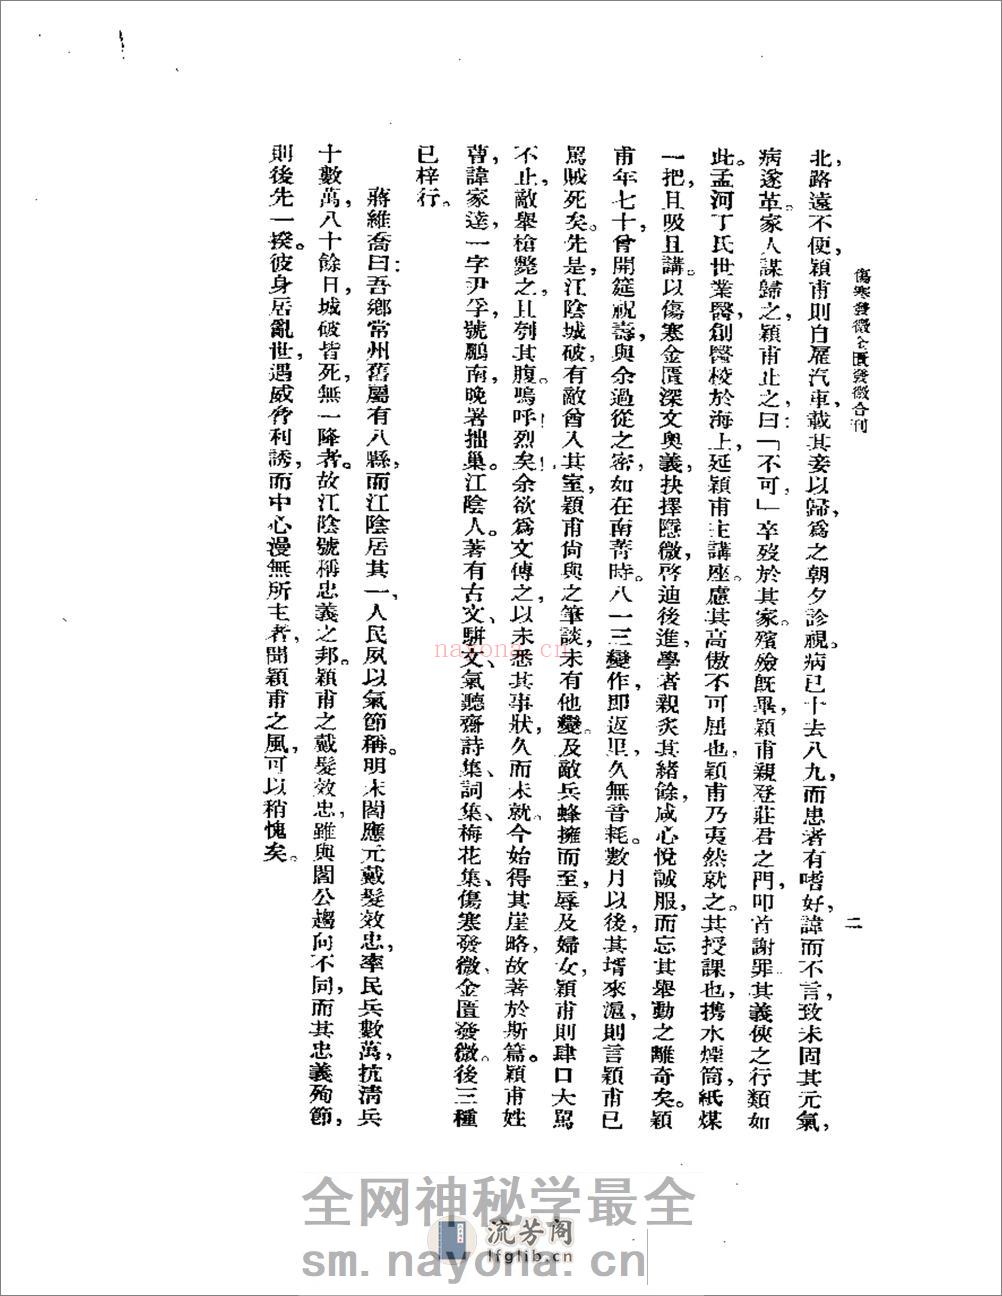 傷寒發微金匱發微合刊
二
北，路遠不便，穎甫則自雇汽車，載其妾以歸，爲之朝夕診視。病已十去八九，而患者有嗜好，諱而不言，致未固其元氣，
病遂革。家人謀歸之，穎甫止之曰：「不可，」卒歿於其家。殯殮旣畢，穎甫親登莊君之門，叩首謝罪。其義俠之行類如
此。孟河丁氏世業醫，創醫校於海上，延穎甫主講座。慮其高傲不可屈也，穎甫乃夷然就之。其授課也，携水煙筒，紙煤
一把，且吸且講。以傷寒金匱深文奧義，抉擇隱微，啓迪後進，學者親炙其緒餘，咸心悅誠服，而忘其舉動之離奇矣。穎
甫年七十，曾開筵祝壽，與余過從之密，如在南菁時。八一三變作，即返里，久無音耗。數月以後，其壻來滬，則言穎甫已
罵賊死矣。先是，江陰城破，有敵酋入其室，穎甫尙與之筆談，未有他變。及敵兵蜂擁而至，辱及婦女，穎甫則肆口大罵
不止，敵舉槍斃之，且刳其腹。嗚呼！烈矣！余欲爲文傳之，以未悉其事狀，久而未就。今始得其崖略，故著於斯篇。穎甫姓
曹，諱家達，一字尹孚，號鵬南，晚署拙巢。江陰人。著有古文、駢文、氣聽齋詩集、詞集、梅花集、傷寒發微、金匱發微。後三種
已梓行。
蔣維喬曰：吾鄉常州舊屬有八縣，而江陰居其一，人民夙以氣節稱。明末閻應元戴髮效忠，率民兵數萬，抗淸兵
十數萬，八十餘日，城破皆死，無一降者。故江陰號稱忠義之邦。穎甫之戴髮效忠，雖與閻公趨向不同，而其忠義殉節，
則後先一揆。彼身居亂世，遇威脅利誘，而中心漫無所主者，聞穎甫之風，可以稍愧矣。
nayona.cn
全网神秘学最全
流芳阁
lfglib.cn
sm.nayona.cn